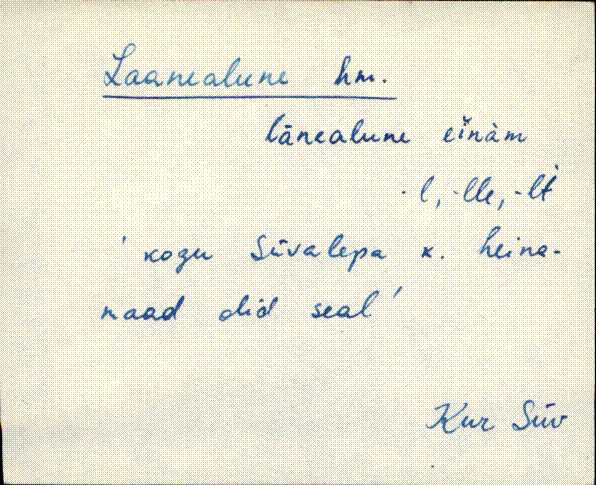 Laanealune hm.
lānealune eĭnàm
-l, -lle, -lt
' kogu Süvalepa k. heina-
maad olid seal '
Kur Süv